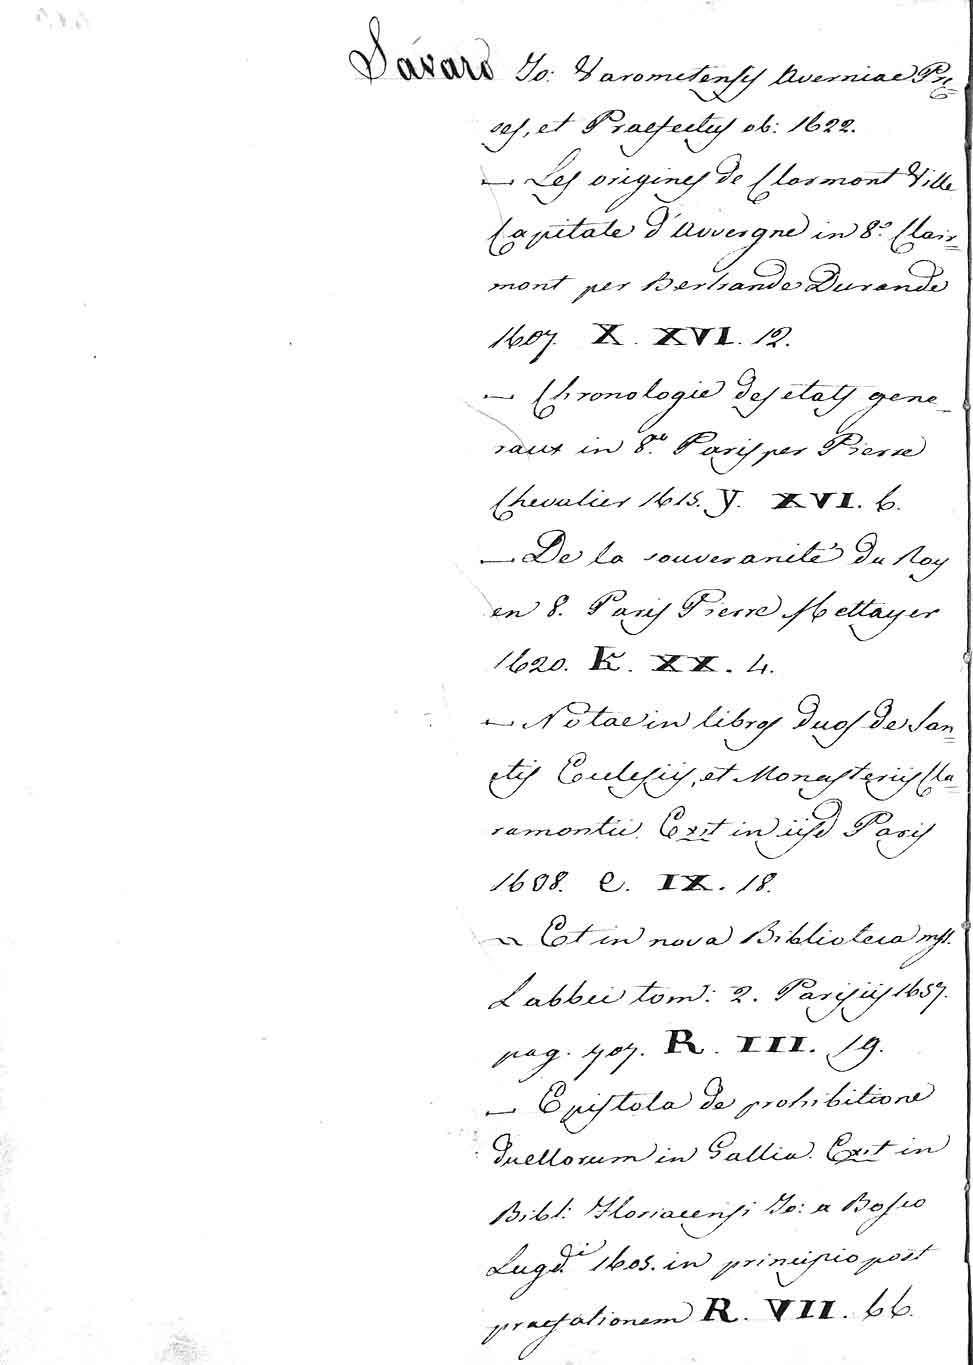 Savaro Jo: Varometensis Averniae Pre=
ses, et Praefectus ob: 1622.
— Les origines de Clarmont Ville
Capitale d'Auvergne in 8.º Clair=
mont per Bertrande Durande
1607. X. XVI. 12.
— Chronologie des etats gene-
raux in 8.º Paris per Pierre
Chevalier 1615. Y. XVI. 6.
— De la souveranité du Roy
en 8. Paris Pierre Mettayer
1620. K. XX. 4.
— Notae in libros duos de San=
ctis Eclesiis, et Monasteriis Cla=
ramontii. Exst in iisd Paris
1608. C. IX. 18.
— Et in nova Biblioteca mss.
Labbei tom: 2. Parisiis 1657.
pag. 707. R. III. 19.
— Epistola de prohibitione
duellorum in Gallia. Exst in
Bibl: Floriacensi Jo: a Bosco
Lugdi. 1605. in principio post
praefationem R. VII. 66.